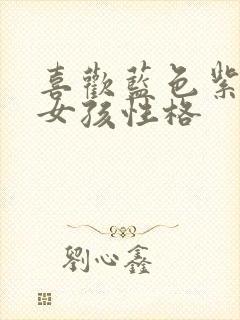 喜歡藍色紫
女孩性格
劉心鑫